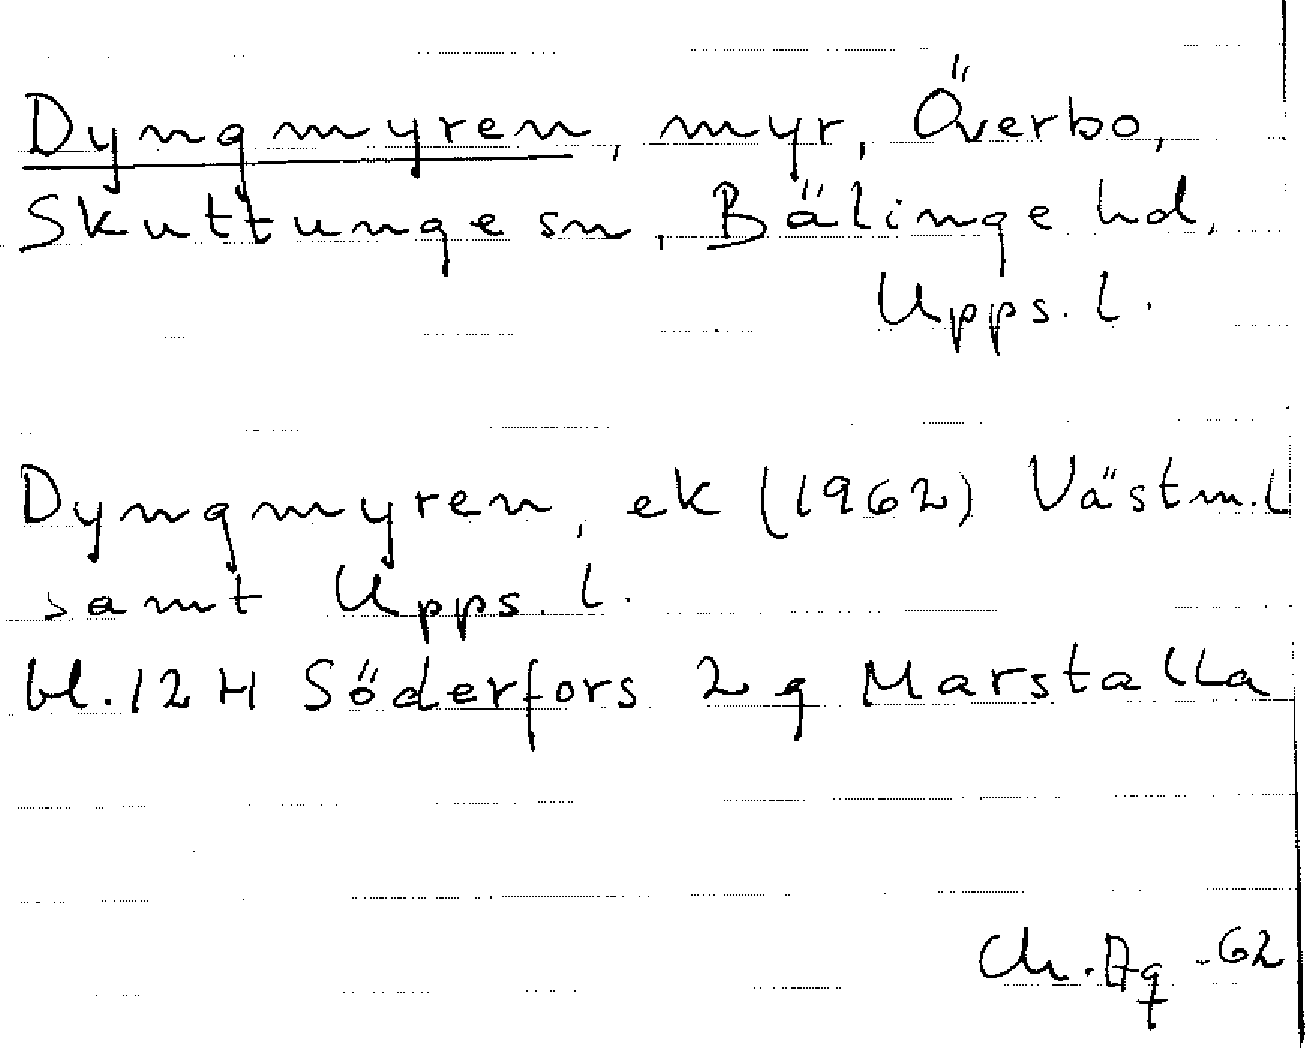 Dyngmyren, myr, Överbo,
Skuttunge sn, Bälinge hd,
Upps. l.
Dyngmyren, ek (1962) Västm. l
samt Upps. l.
bl. 12 H Söderfors 2 g Marstalla
-62